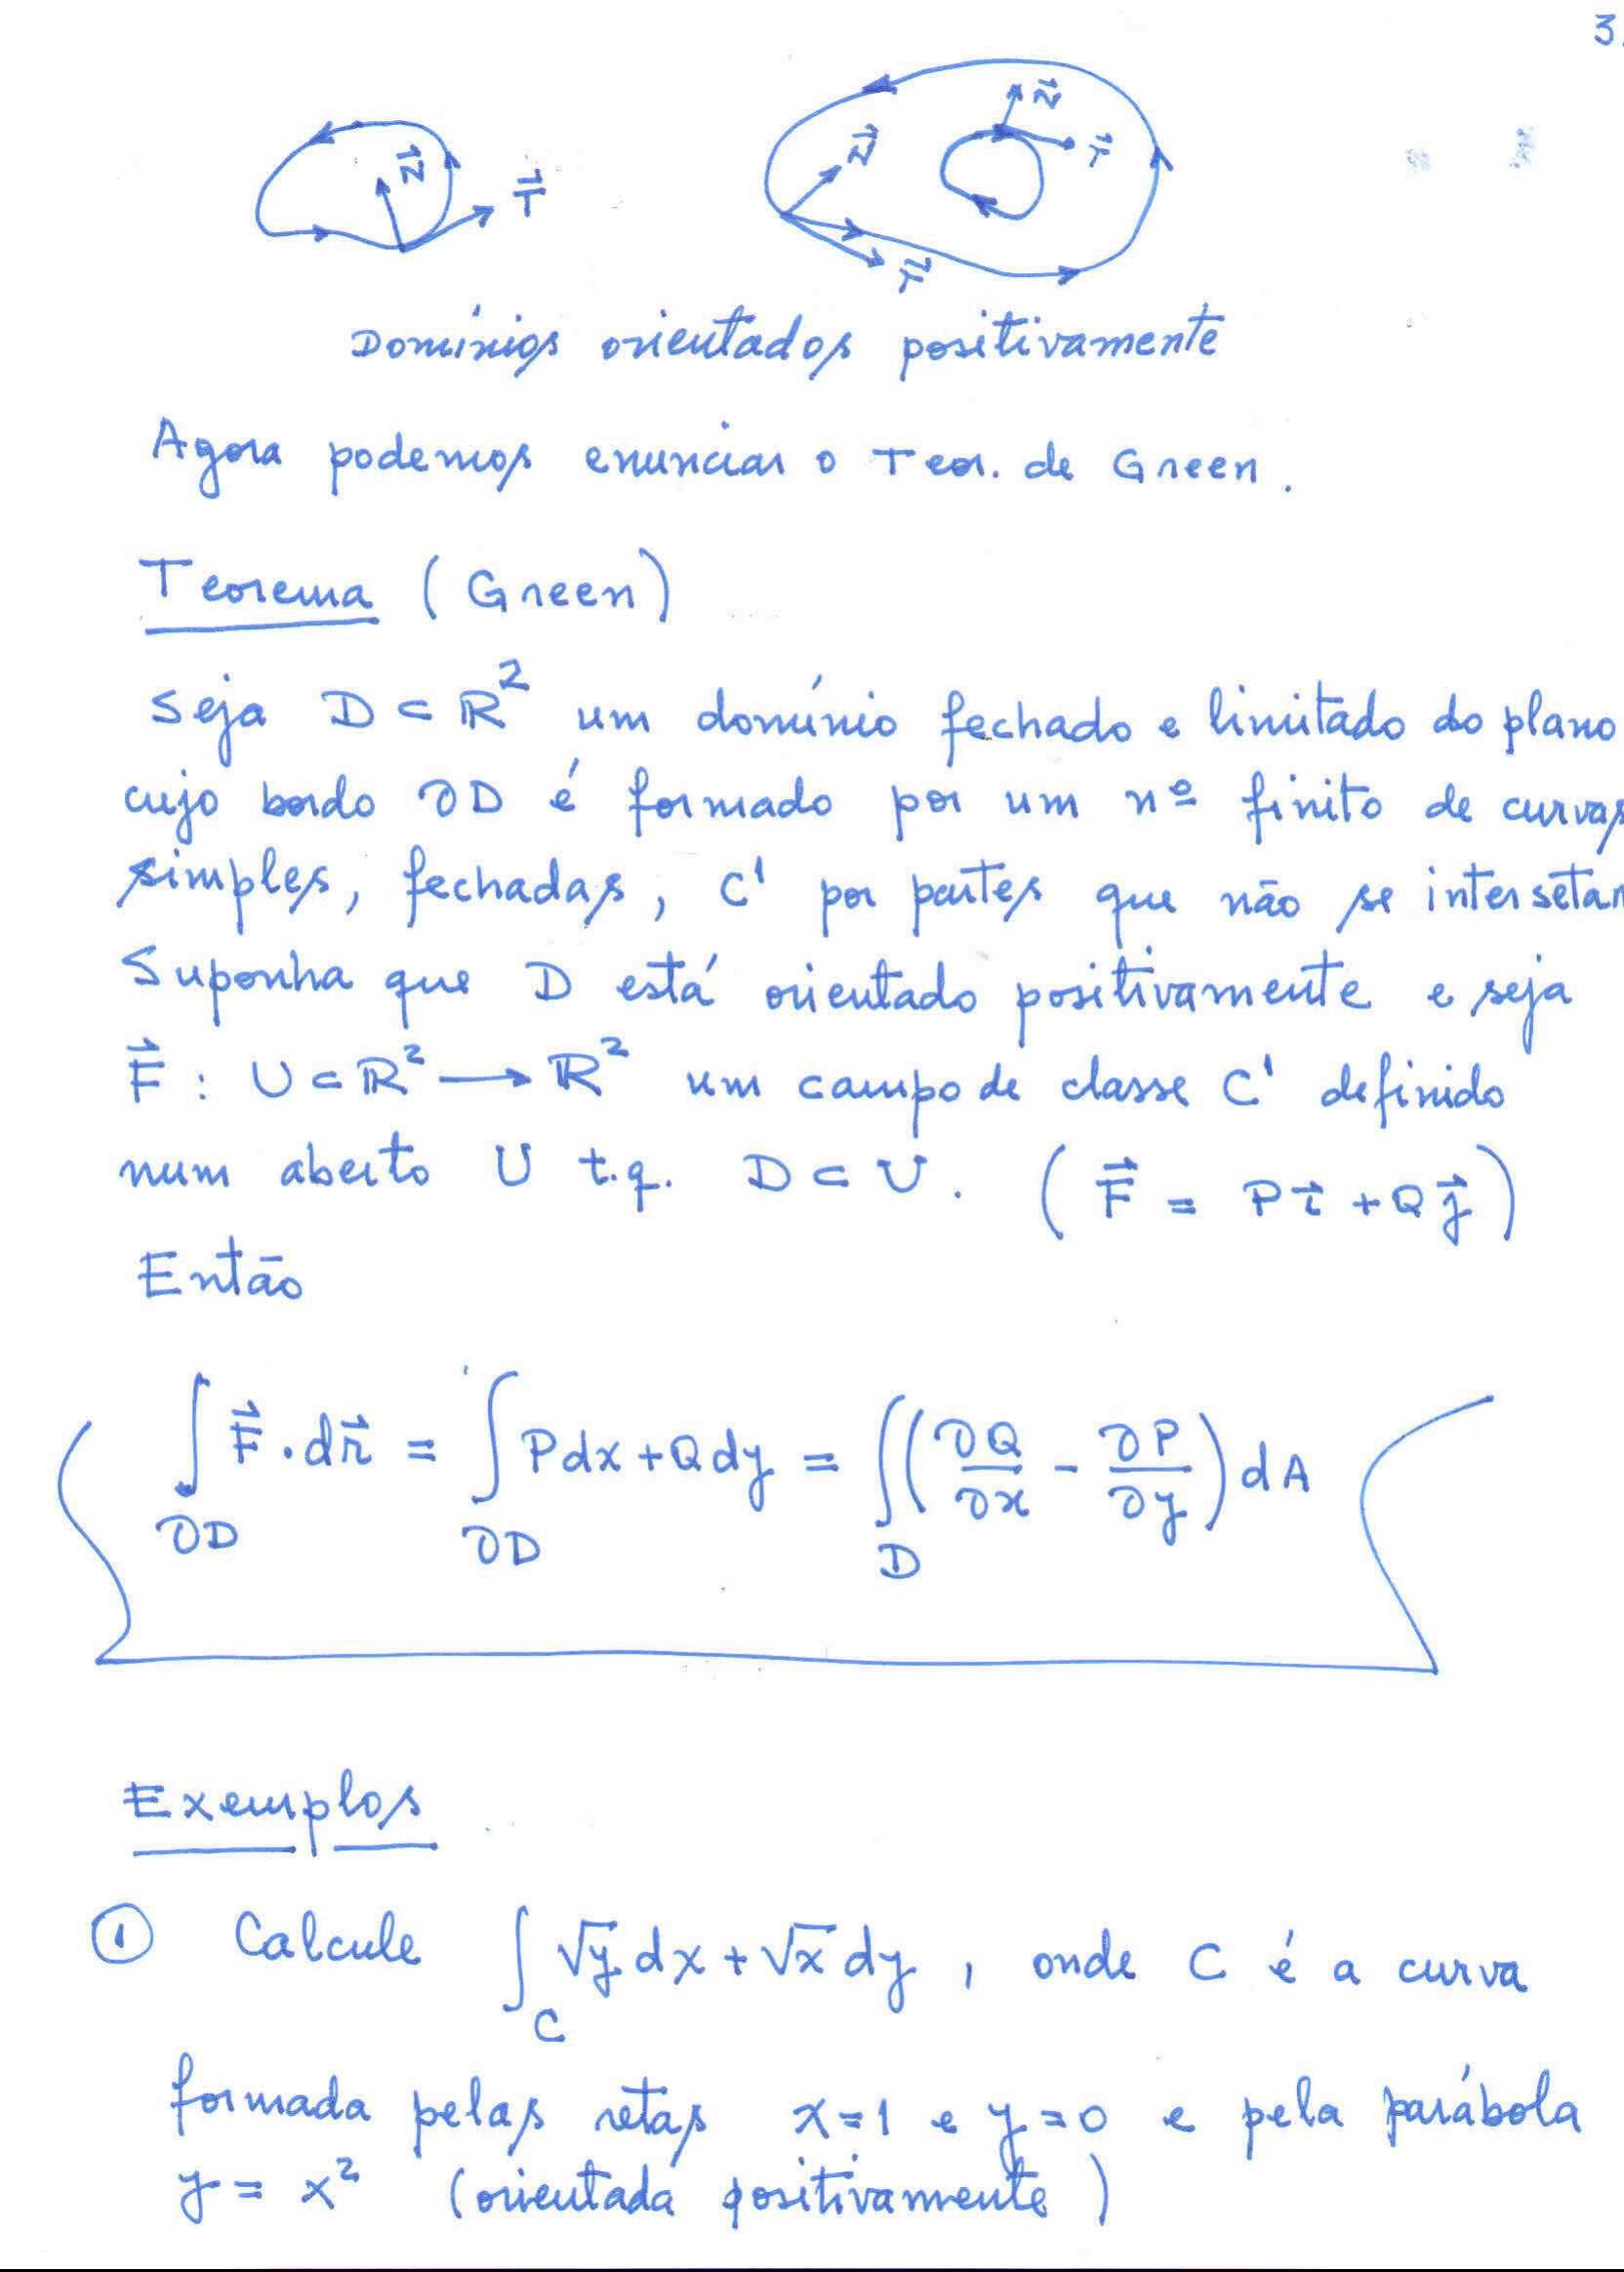 3.
N⃗ T⃗ N⃗ T⃗ N⃗ T⃗
Domínios orientados positivamente
Agora podemos enunciar o Teor. de Green.
Teorema (Green)
Seja D ⊂ ℝ² um domínio fechado e limitado do plano
cujo bordo ∂D é formado por um nº finito de curvas
simples, fechadas, C¹ por partes que não se intersetam
Suponha que D está orientado positivamente e seja
F⃗ : U ⊂ ℝ² → ℝ² um campo de classe C¹ definido
num aberto U t.q. D ⊂ U. (F⃗ = P i⃗ + Q j⃗)
Então
∫_∂D F⃗ · dr⃗ = ∫_∂D Pdx + Qdy = ∫_D (∂Q/∂x - ∂P/∂y) dA
Exemplos
① Calcule ∫_C √y dx + √x dy , onde C é a curva
formada pelas retas x=1 e y=0 e pela parábola
y = x² (orientada positivamente)